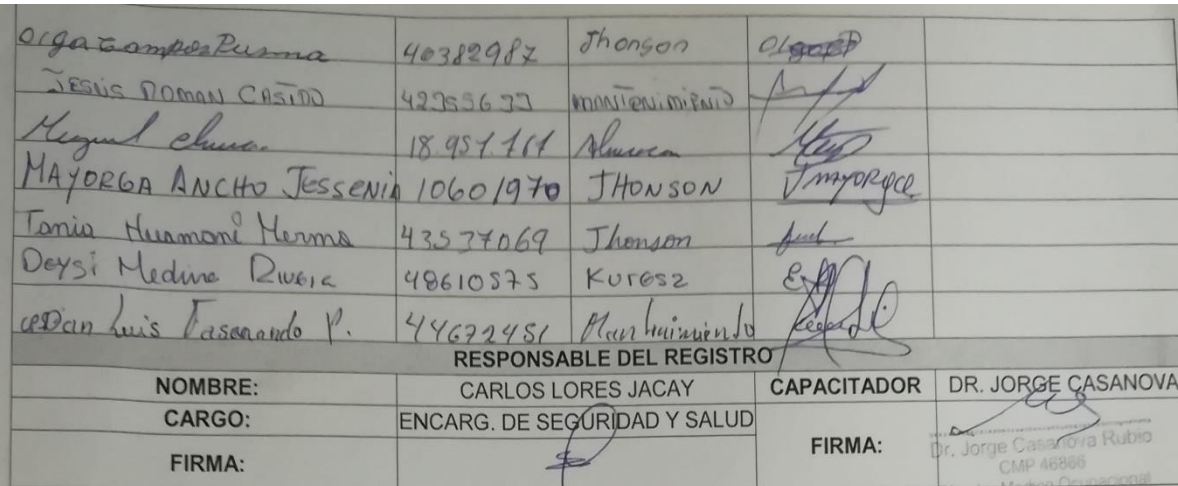 Olga Campos Puma 40382987 Jhonson Olga
JESÚS ROMAN CASTRO 42355633 MANTENIMIENTO
Miguel 18.951.161
MAYORGA ANCHO JESSENIA 10601970 JHONSON Jmayorga
Tania Huamaní Merma 43537069 Jhonson
Deysi Medina Rivera 48610575 Kuresz
Luis Fasanando P. 44672451 Mantenimiento
RESPONSABLE DEL REGISTRO
NOMBRE: CARLOS LORES JACAY CAPACITADOR DR. JORGE CASANOVA
CARGO: ENCARG. DE SEGURIDAD Y SALUD
FIRMA: FIRMA:
Dr. Jorge Casanova Rubio
CMP 46866
Medico Ocupacional